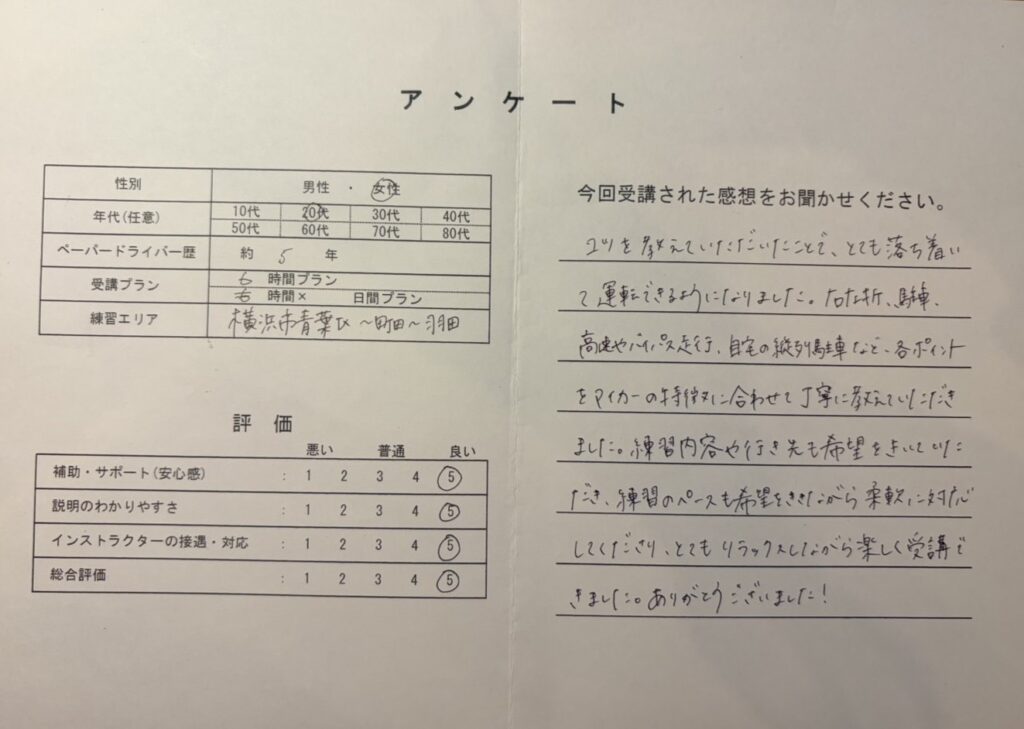 アンケート
性別 男性 ・ 女性
年代(任意) 10代 20代 30代 40代
50代 60代 70代 80代
ペーパードライバー歴 約 5 年
受講プラン 6 時間プラン
時間× 日間プラン
練習エリア 横浜市青葉区〜町田〜羽田
評価
悪い 普通 良い
補助・サポート(安心感) : 1 2 3 4 5
説明のわかりやすさ : 1 2 3 4 5
インストラクターの接遇・対応 : 1 2 3 4 5
総合評価 : 1 2 3 4 5
今回受講された感想をお聞かせください。
コツを教えていただいたことで、とても落ち着い
て運転できるようになりました。右左折、駐車、
高速やバイパス走行、自宅の縦列駐車など、各ポイント
をマイカーの特徴に合わせて丁寧に教えていただき
ました。練習内容や行き先も希望をきいていた
だき、練習のペースも希望をききながら柔軟に対応
してくださり、とてもリラックスしながら楽しく受講で
きました。ありがとうございました!